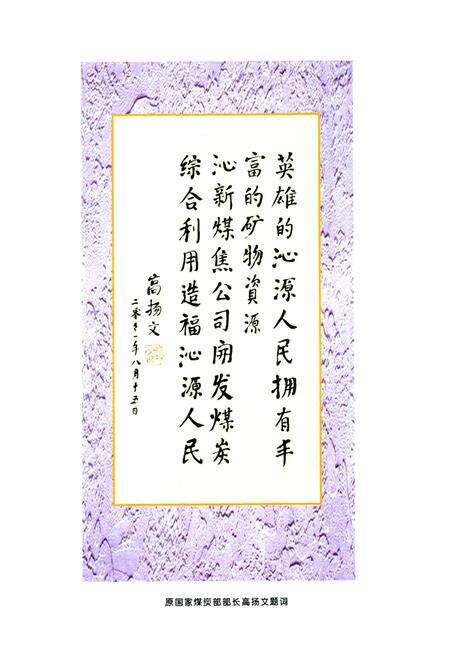 英雄的沁源人民拥有丰
富的矿物資源
沁新煤焦公司开发煤炭
综合利用造福沁源人民
高扬文
二零零一年八月十五日
原国家煤炭部部长高扬文题词